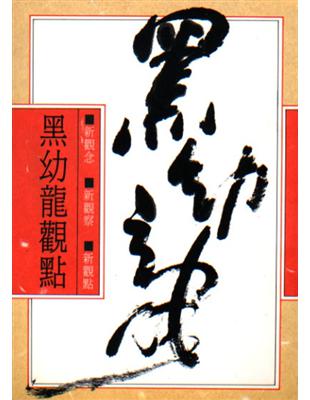 黑幼龍
■新觀念 ■新觀察 ■新觀點
黑幼龍觀點